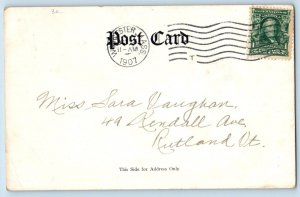 Post Card
MASS
11-AM
1907
Miss Sara Vaughan,
49 Kendall Ave,
Rutland Vt.
This Side for Address Only